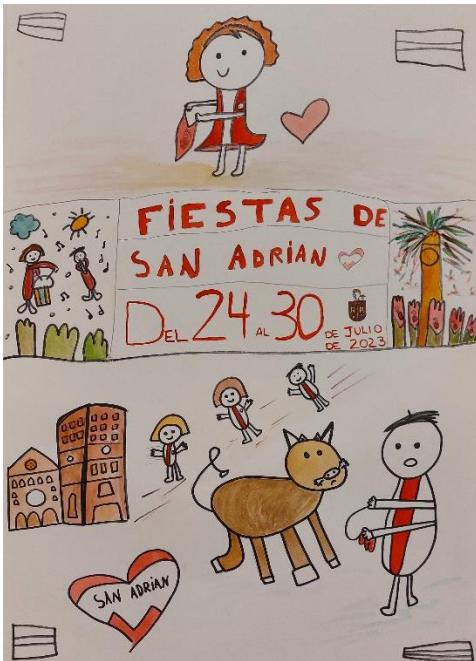 FIESTAS DE
SAN ADRIAN
DEL 24 AL 30 DE JULIO
DE 2023
SAN ADRIAN